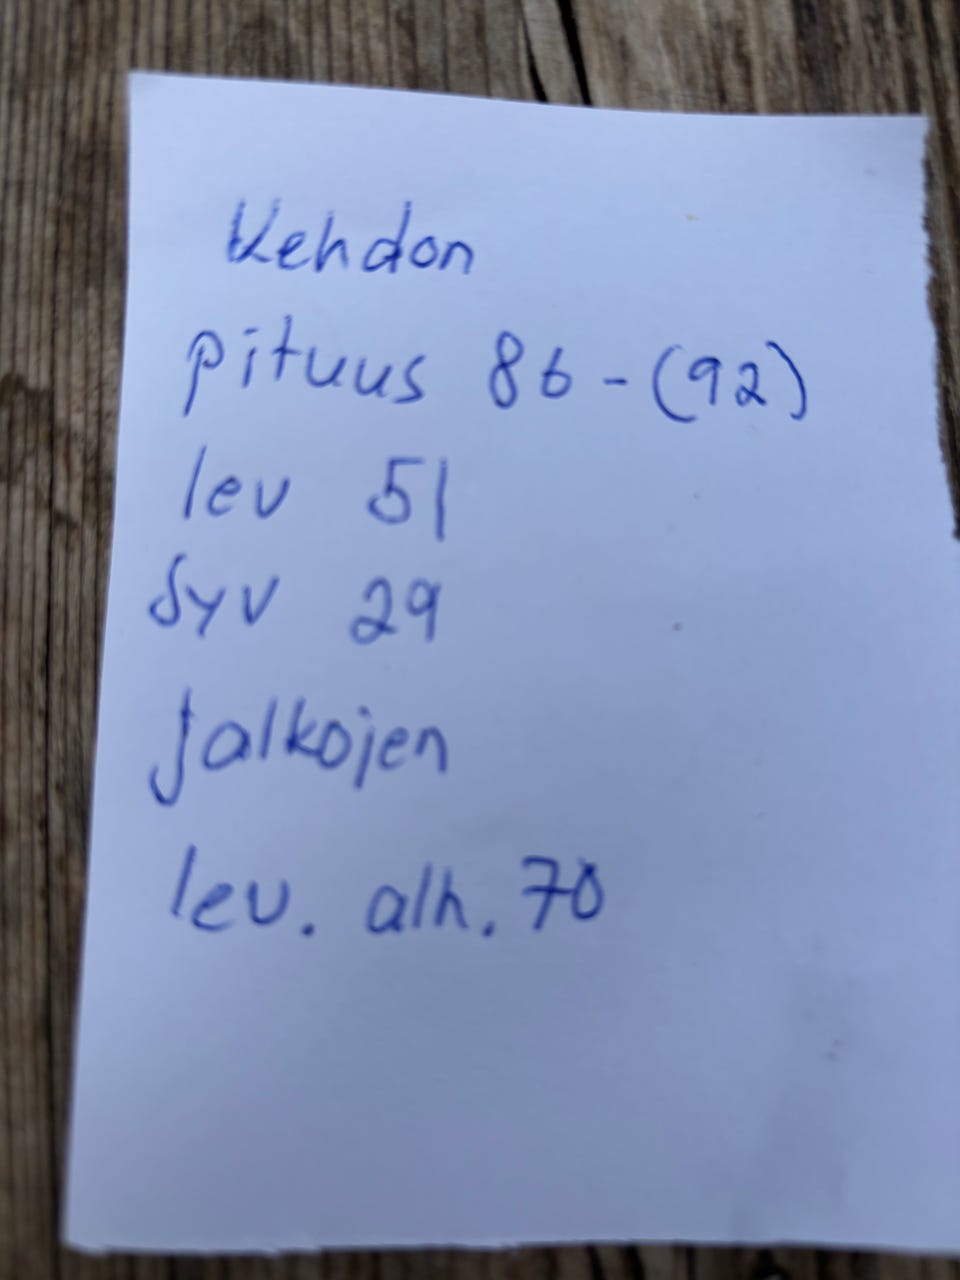 Kehdon
pituus 86-(92)
lev 51
Syv 29
jalkojen
lev. alh. 70